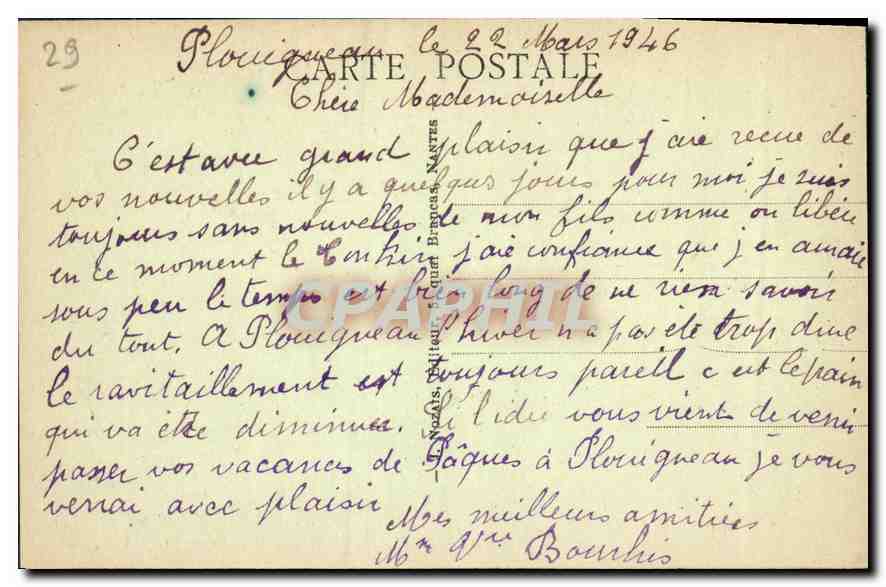 29
Plouigneau le 22 Mars 1946
CARTE POSTALE
Chère Mademoiselle
C'est avec grand plaisir que j'aie recue de
vos nouvelles il y a quelques jours pour moi je suis
toujours sans nouvelles de mon fils comme on libère
en ce moment le Tonkin j'aie confiance que j'en aurais
sous peu le temps est bien long de ne rien savoir
du tout. A Plouigneau l'hiver n'a pas été trop dure
le ravitaillement est toujours pareil c'est le pain
qui va être diminuer. Si l'idée vous vient de venir
passer vos vacances de Pâques à Plouigneau je vous
verrai avec plaisir
Mes meilleurs amitiées
Mm Bourhis
Nozais, Editeur, 5, quai Brancas, NANTES
CPARPHIL